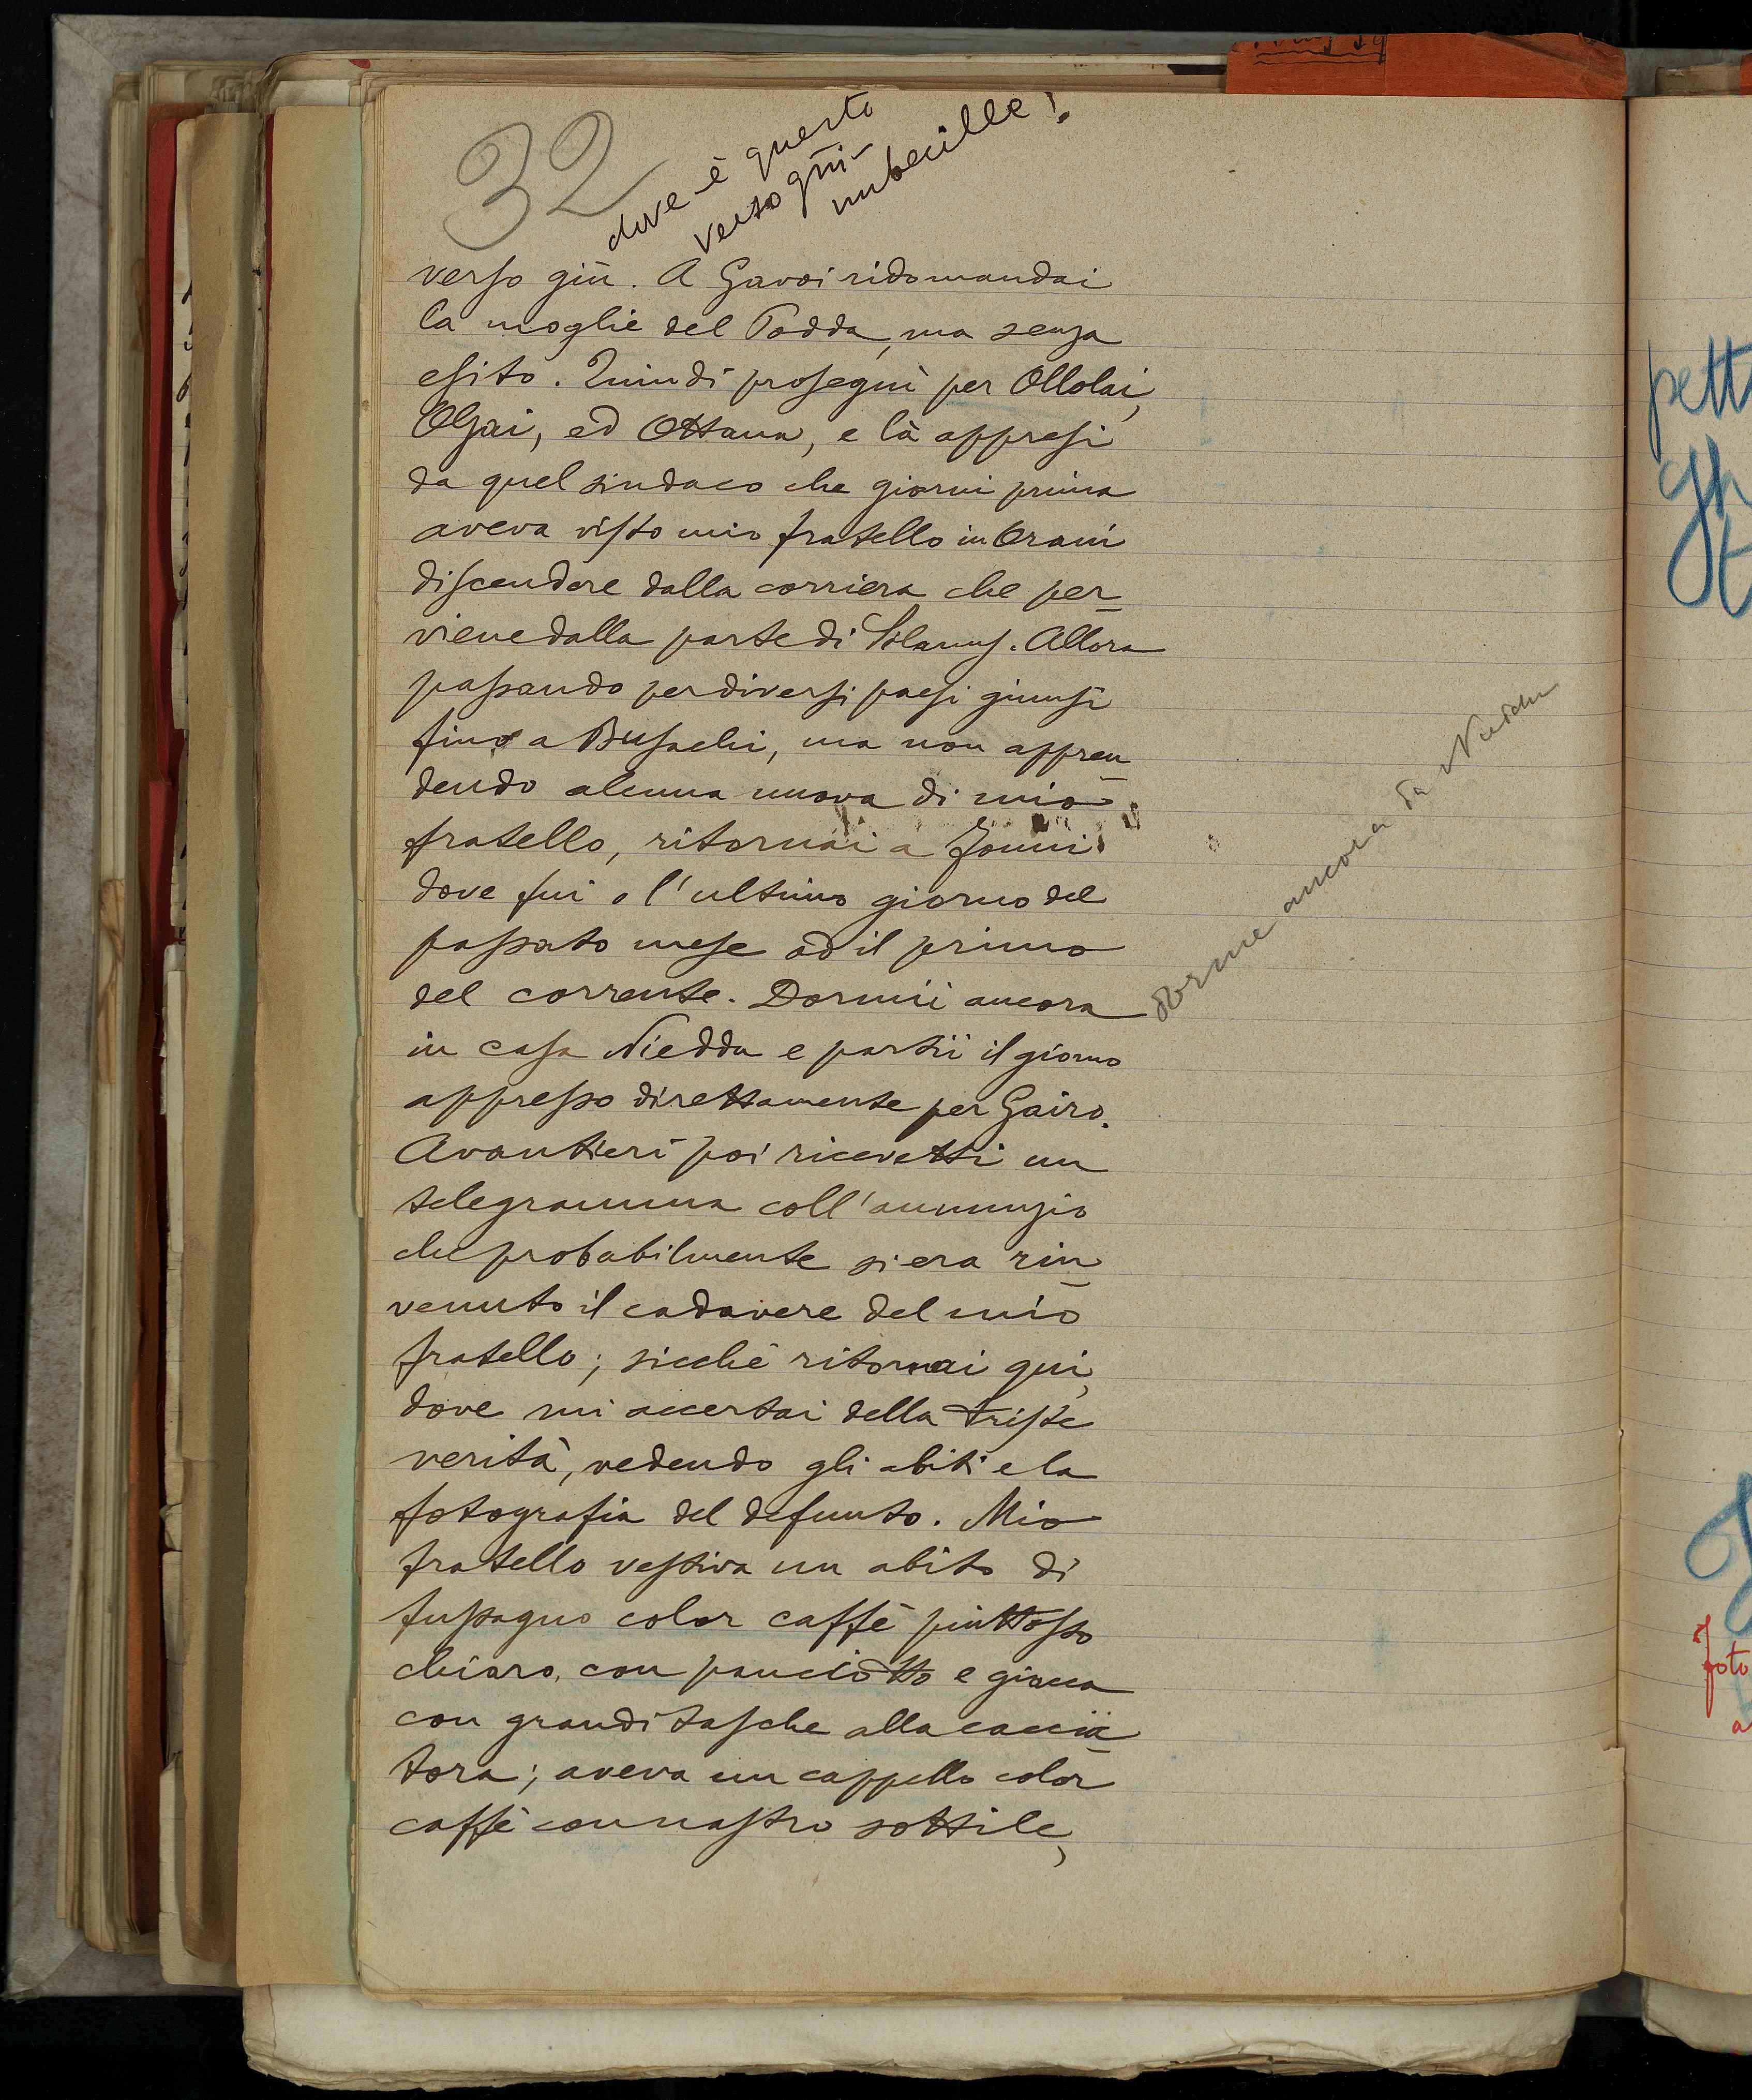 32
dove è questo
verso giù
imbecille!
verso giù. A Gavoi ridomandai
la moglie del Podda, ma senza
esito. Quindi proseguì per Ollolai,
Olzai, ed Ottana, e là appresi
da quel sindaco che giorni prima
aveva visto mio fratello in Orani
discendere dalla corriera che per_
viene dalla parte di Silanus. Allora
passando per diversi paesi giunsi
fino a Busachi, ma non appren_
dendo alcuna nuova di mio
fratello, ritornai a Fonni
dove fui o l'ultimo giorno del
passato mese od il primo
del corrente. Dormii ancora
in casa Nieddu e partii il giorno
appresso direttamente per Gairo.
Avantieri poi ricevetti un
telegramma coll'annunzio
che probabilmente si era rin_
venuto il cadavere del mio
fratello; sicchè ritornai qui,
dove mi accertai della triste
verità, vedendo gli abiti e la
fotografia del defunto. Mio
fratello vestiva un abito di
fustagno color caffè piuttosto
chiaro, con panciotto e giacca
con grandi tasche alla caccia_
tora; aveva un cappello color
caffè con nastro sottile,
dorme ancora da Nieddu
pett
gh
t
foto
a